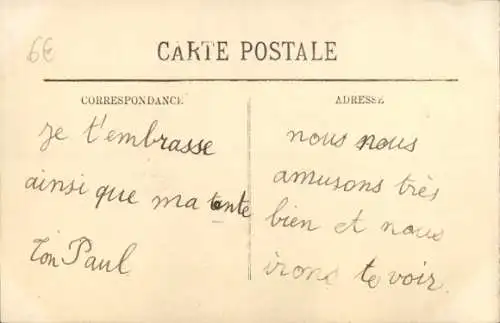 6€
CARTE POSTALE
CORRESPONDANCE
je t'embrasse
ainsi que ma tente
Ton Paul
ADRESSE
nous nous
amusons très
bien et nous
irons te voir.